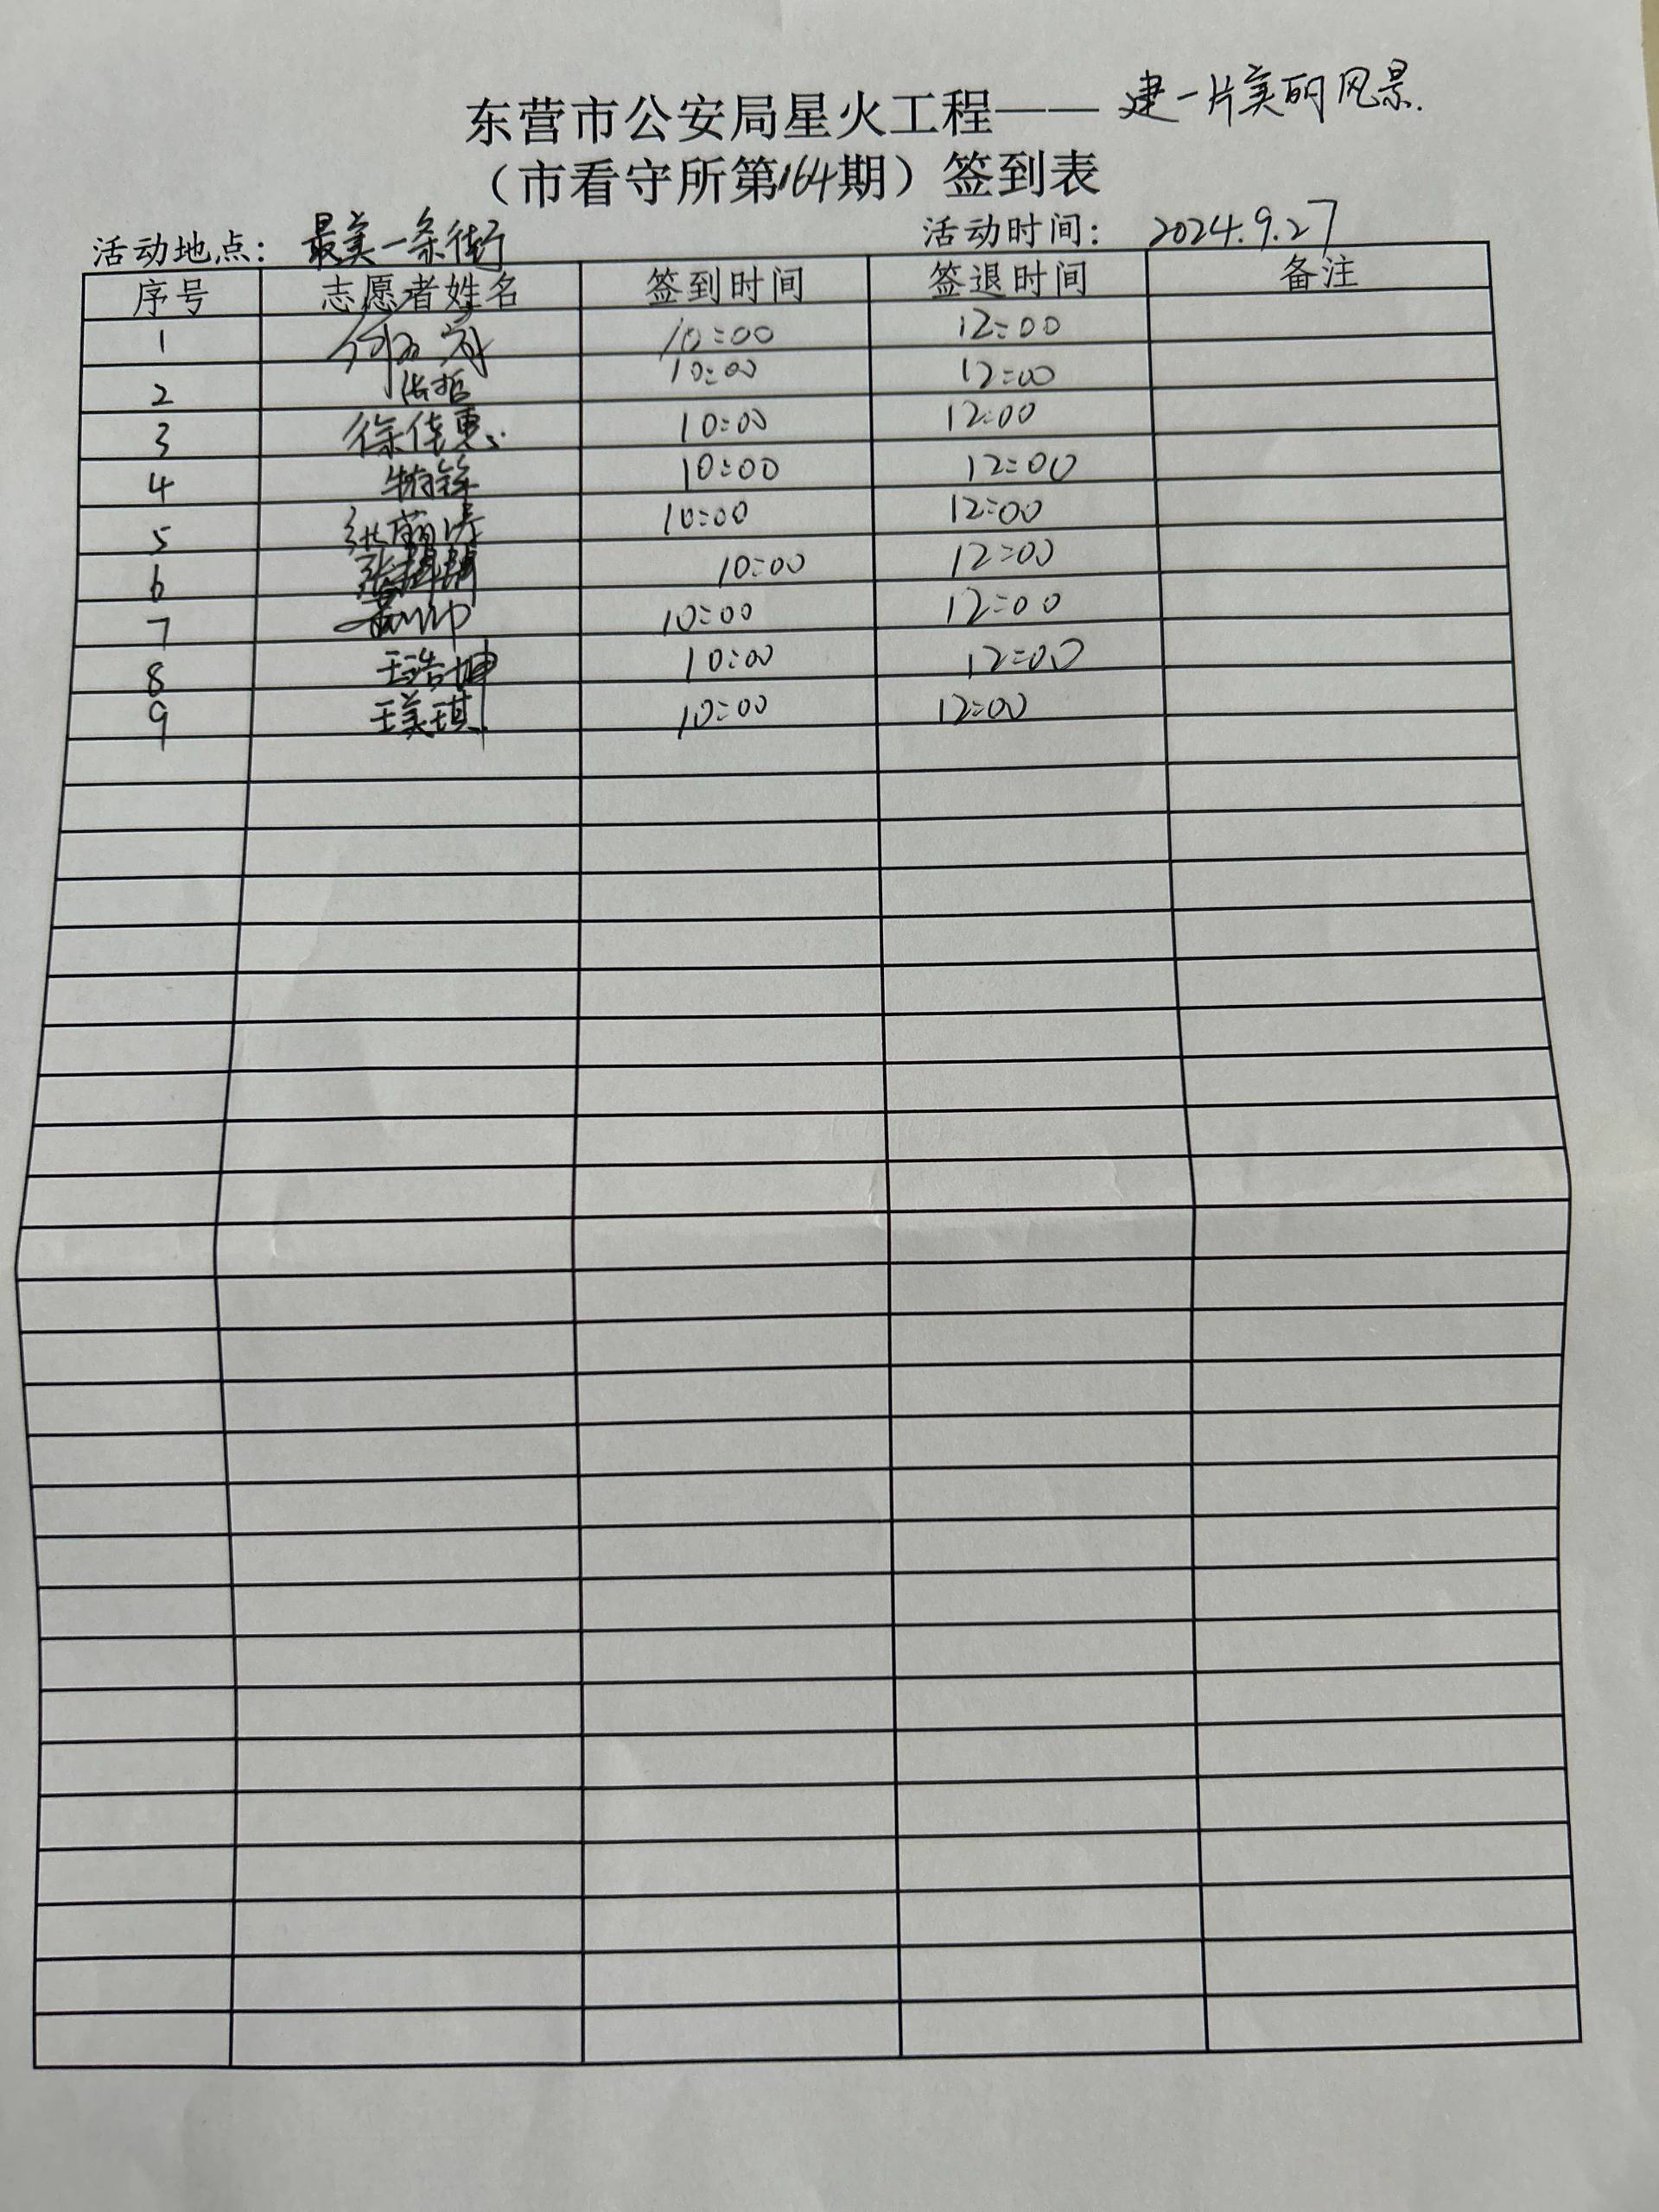 东营市公安局星火工程—— 建一片美的风景.
（市看守所第164期）签到表
活动地点：最美一条街 活动时间： 2024.9.27
序号 志愿者姓名 签到时间 签退时间 备注
1 10:00 12:00
2 10:00 12:00
3 徐佳惠 10:00 12:00
4 10:00 12:00
5 10:00 12:00
6 10:00 12:00
7 10:00 12:00
8 王浩坤 10:00 12:00
9 王美琪 10:00 12:00